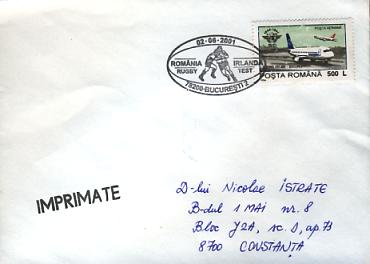 02-06-2001
ROMÂNIA IRLANDA
RUGBY TEST
76200-BUCUREȘTI 2
POȘTA AERIANĂ
POȘTA ROMÂNĂ 500 L
IMPRIMATE
D-lui Nicolae ISTRATE
B-dul 1 MAI nr. 8
Bloc J2A, sc. D, ap. 73
8700 CONSTANȚA